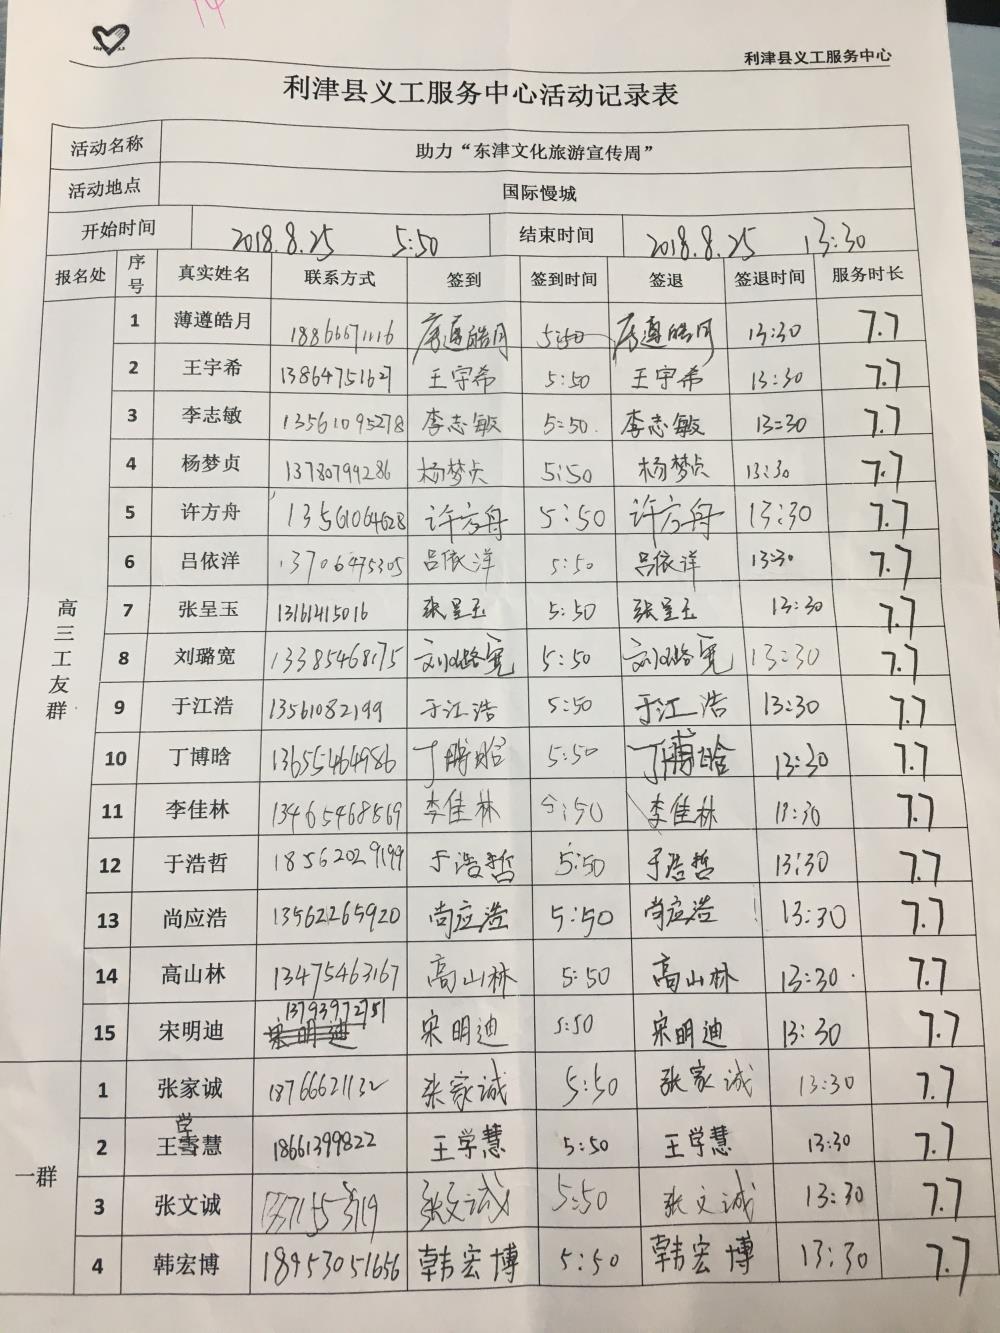 14
利津县义工服务中心
利津县义工服务中心活动记录表
活动名称 助力“东津文化旅游宣传周”
活动地点 国际慢城
开始时间 2018.8.25 5:50 结束时间 2018.8.25 13:30
报名处 序号 真实姓名 联系方式 签到 签到时间 签退 签退时间 服务时长
高三工友群
1 薄遵皓月 18866671116 薄遵皓月 5:50 薄遵皓月 13:30 7.7
2 王宇希 13864751627 王宇希 5:50 王宇希 13:30 7.7
3 李志敏 13561095278 李志敏 5:50 李志敏 13:30 7.7
4 杨梦贞 13780799286 杨梦贞 5:50 杨梦贞 13:30 7.7
5 许方舟 13561064628 许方舟 5:50 许方舟 13:30 7.7
6 吕依洋 13706475305 吕依洋 5:50 吕依洋 13:30 7.7
7 张呈玉 13161415016 张呈玉 5:50 张呈玉 13:30 7.7
8 刘璐宽 13385468175 刘璐宽 5:50 刘璐宽 13:30 7.7
9 于江浩 13561082199 于江浩 5:50 于江浩 13:30 7.7
10 丁博晗 13655464986 丁博晗 5:50 丁博晗 13:30 7.7
11 李佳林 13465468569 李佳林 5:50 李佳林 13:30 7.7
12 于浩哲 18562029199 于浩哲 5:50 于浩哲 13:30 7.7
13 尚应浩 13562265920 尚应浩 5:50 尚应浩 13:30 7.7
14 高山林 13475463167 高山林 5:50 高山林 13:30 7.7
15 宋明迪 13793972751 宋明迪 5:50 宋明迪 13:30 7.7
一群
1 张家诚 18766621132 张家诚 5:50 张家诚 13:30 7.7
学
2 王雪慧 18661399822 王学慧 5:50 王学慧 13:30 7.7
3 张文诚 张文诚 5:50 张文诚 13:30 7.7
4 韩宏博 18953051656 韩宏博 5:50 韩宏博 13:30 7.7